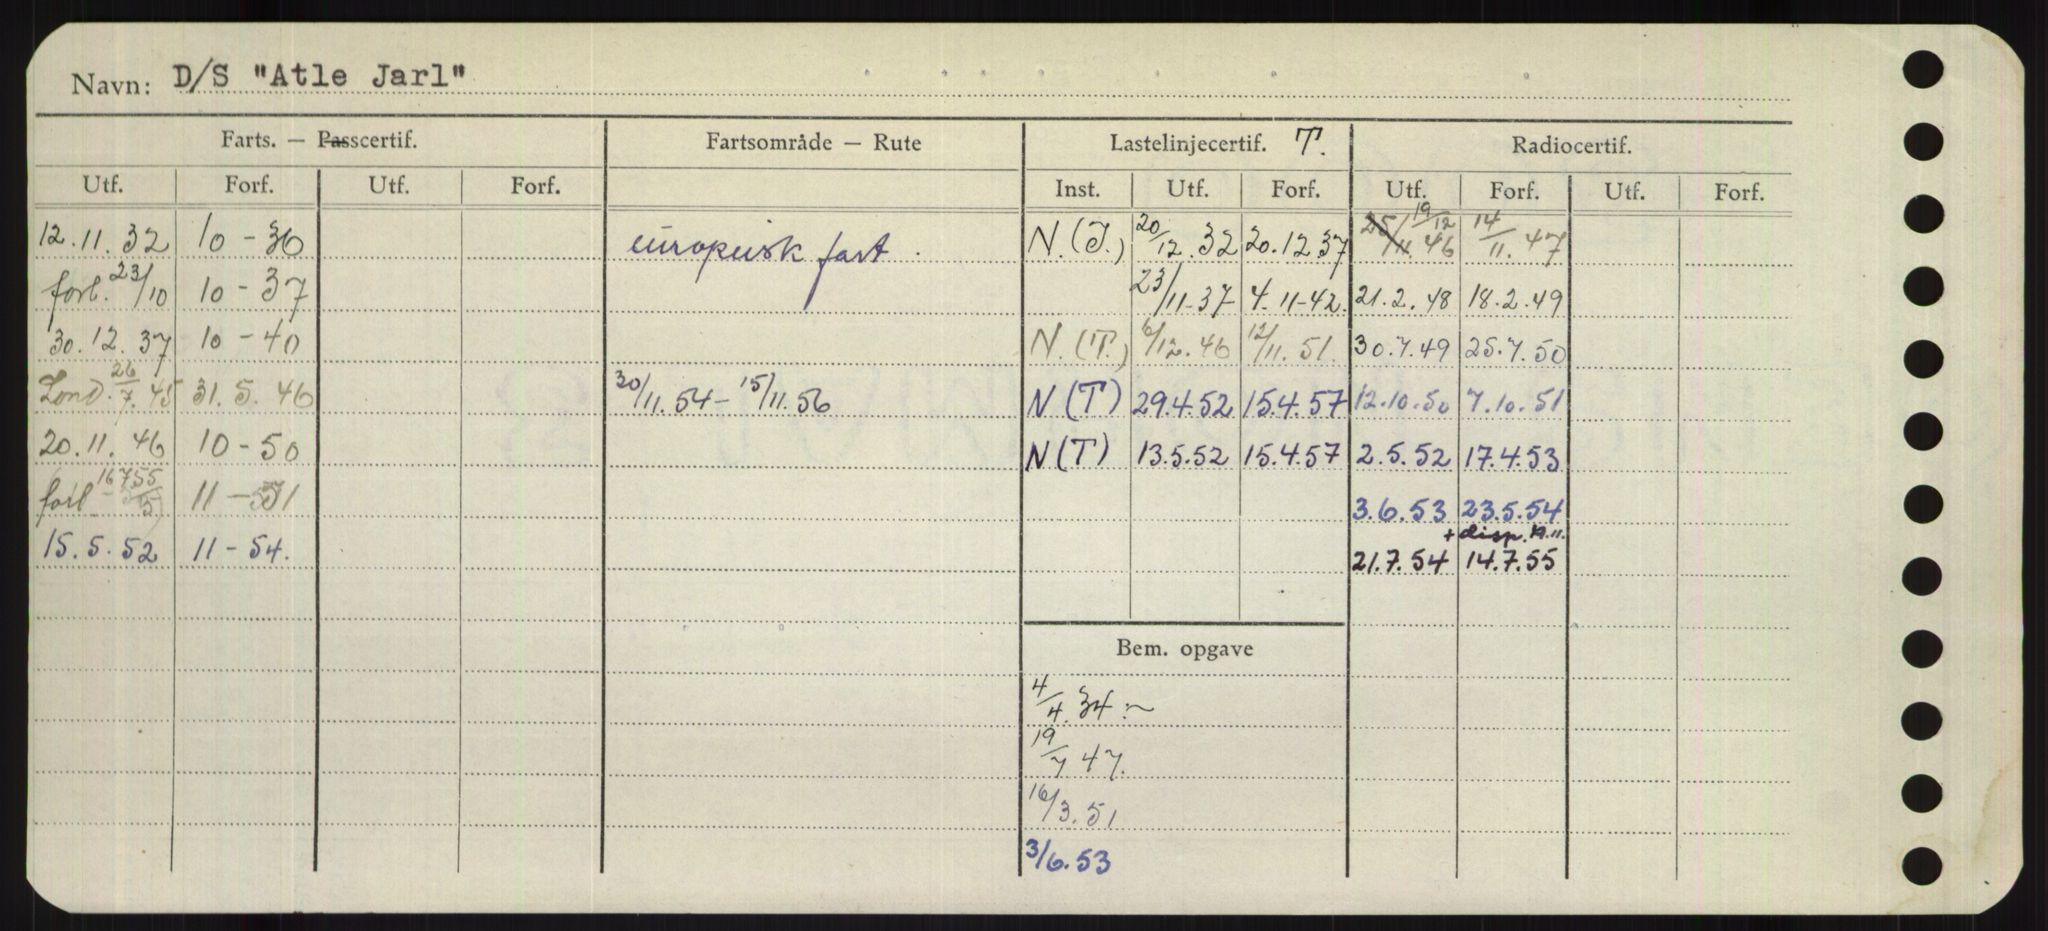 Navn: D/S "Atle Jarl"
Farts. — Passcertif. Fartsområde — Rute Lastelinjecertif. T. Radiocertif.
Utf. Forf. Utf. Forf. Inst. Utf. Forf. Utf. Forf. Utf. Forf.
12.11.32 10-36 europeisk fart N.(T.) 20/12.32 20.12.37 25/11.46 19/12 14/11.47
forl. 23/10 10-37 23/11-37 4.11-42. 21.2.48 18.2.49
30.12.37 10-40 N.(T.) 6/12.46 12/11.51. 30.7.49 25.7.50
Lond. 26/7.45 31.5.46 30/11.54-15/11.56 N(T) 29.4.52 15.4.57 12.10.50 7.10.51
20.11.46 10-50 N(T) 13.5.52 15.4.57 2.5.52 17.4.53
forl 11-51 3.6.53 23.5.54
+ disp. 19.11.
15.5.52 11-54. 21.7.54 14.7.55
Bem. opgave
4/4.34:~
19/7 47.
16/3.51
3/6.53